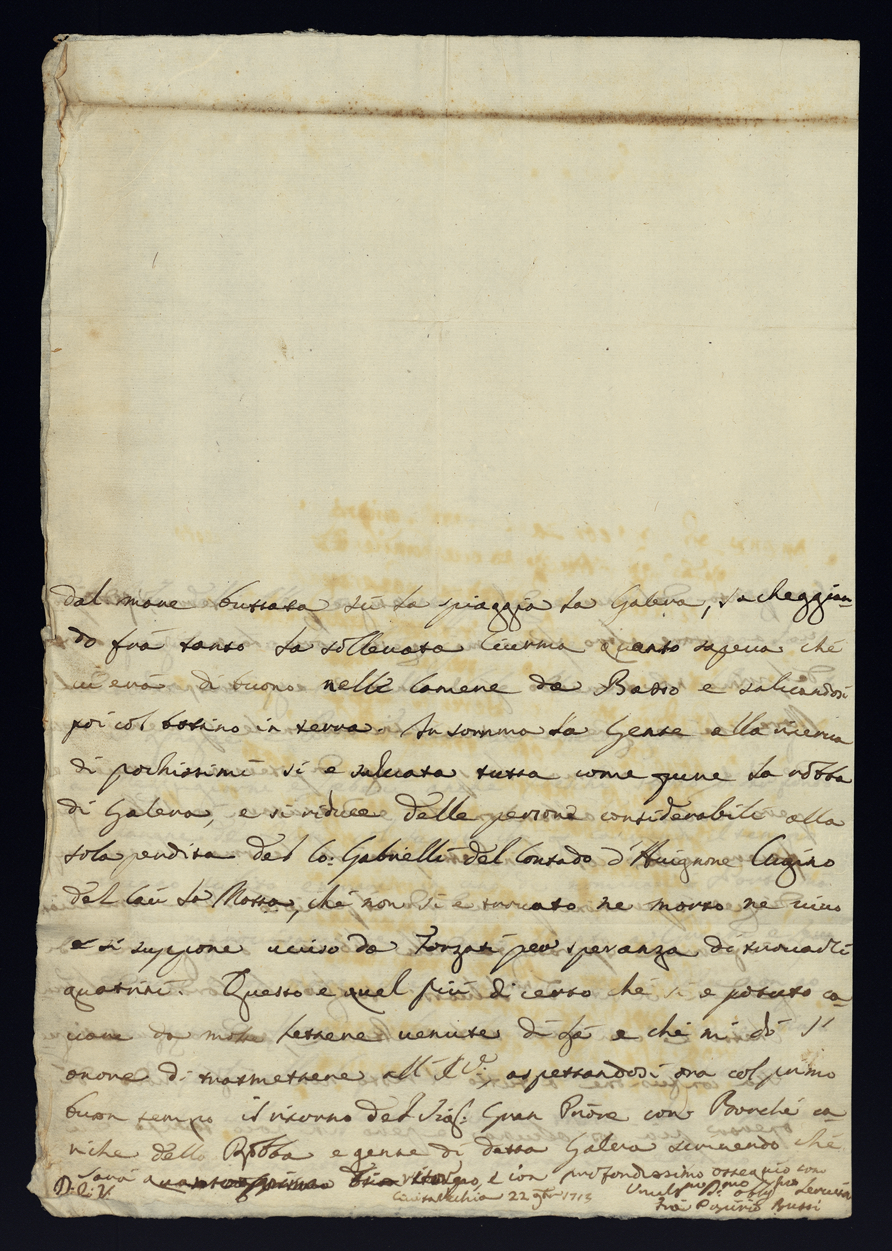 dal mare buttata sù la spiaggia la Galera, sacheggian-
do frà tanto la solleuata Ciurma quanto sapeua che
ui erà di buono nelle Camere da Basso e saluandosi
poi col bottino in terra. In somma la Gente alla riserua
di pochissimi si e saluata tutta come pure la robba
di Galera, e si riduce delle persone considerabili alla
sola perdita del Co: Gabrielli del Contado d'Auignone Cugino
del Cau la Motta, che non si e trouato ne morto ne uiuo
e si suppone ucciso da Forzati per speranza di trouarli
quatrini. Questo e quel più di certo che si e potuto ca-
uare da molte lettere uenute di là e che mi dò l'
onore di trasmettere all' aspettandosi ora col primo
buon tempo il ritorno del Gran Priore con Barche ca-
riche della Robba e gente di detta Galera scriuendo che
sarà e con profondissimo ossequio sono
D. Ciuitauecchia 22 1713
Seruitore
Frà Bussi